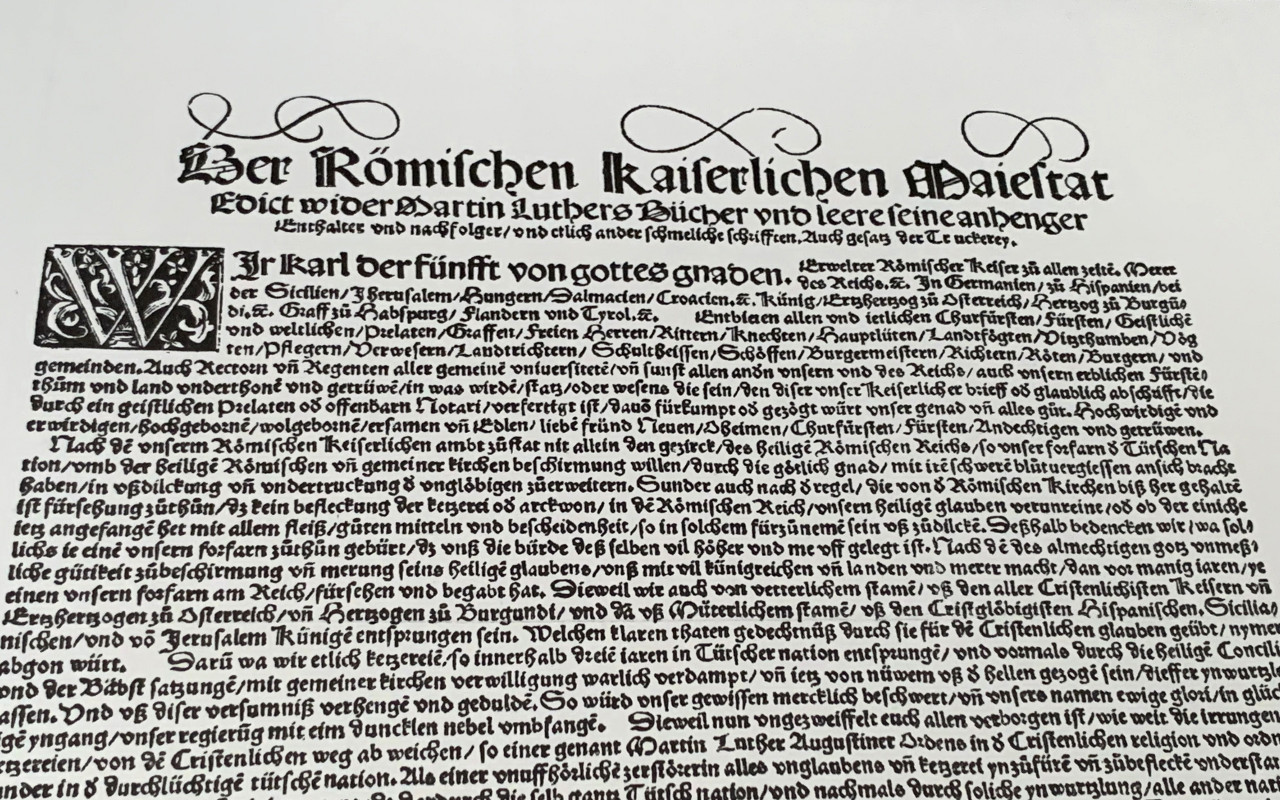 Der Römischen Kaiserlichen Maiestat
Edict wider Martin Luthers Bücher vnd leere seine anhenger
Enthalter vnd nachfolger/vnd etlich ander schmeliche schrifften. Auch gesatz der Truckerey.
WIr Karl der fünfft von gottes gnaden. Erwelter Römischer Keiser zů allen zeitẽ. Merer
des Reichs. ꝛc. In Germanien/zů Hispanien/bei
der Sicilien/Jherusalem/Hungern/Dalmacien/Croacien.ꝛc. Künig/Ertzhertzog zů Osterreich/Hertzog zů Burgũ⸗
di.ꝛc. Graff zů Habspurg/Flandern vnd Tyrol.ꝛc. Entbieten allen vnd ietlichen Churfürsten/Fürsten/Geistlichẽ
vnd weltlichen/Prelaten/Graffen/Freien Herren/Rittern/Knechten/Hauptlüten/Landtfögten/Vitzthumben/Vög
ten/Pflegern/Verwesern/Landtrichtern/Schultheissen/Schöffen/Burgermeistern/Richtern/Röten/Burgern/vnd
gemeinden. Auch Rectorn vñ Regenten aller gemeinẽ vniuersitetẽ/vñ sunst allen andn vnsern vnd des Reichs/auch vnsern erblichen Fürstẽ⸗
thům vnd land vnderthonẽ vnd getrüwẽ/in was wirdẽ/statz/oder wesens die sein/den diser vnser Keiserlicher brieff oď glaublich abschrifft/die
durch ein geistlichen Prelaten oď offenbarn Notari/verfertigt ist/dauõ fürkumpt oď gezögt würt vnser genad vñ alles gůt. Hochwirdigẽ vnd
erwirdigen/hochgebornẽ/wolgebornẽ/ersamen vñ Edlen/liebẽ fründ Neuen/Oheimen/Churfürsten/Fürsten/Andechtigen vnd getrüwen.
Nach dẽ vnserm Römischen Keiserlichen ambt zůstat nit allein den gezirck/des heiligẽ Römischen Reichs/so vnser forfarn ď Tütschen Na
tion/vmb der heiligẽ Römischen vñ gemeiner kirchen beschirmung willen/durch die götlich gnad/mit irẽ schwerẽ blůtuergiessen an sich brache
haben/in vßdilckung vñ vndertruckung ď vnglöbigen zů erweitern. Sunder auch nach ď regel/die von ď Römischen Kirchen biß her gehaltẽ
ist fürsehung zů thůn/dz kein befleckung der ketzerei oď arckwon/in dẽ Römischen Reich/vnsern heiligẽ glauben verunreine/oď ob der einiche
ietz angefangẽ het mit allem fleiß/gůten mitteln vnd bescheidenheit/so in solchem fürzůnemẽ sein vß zů dilckẽ. Deßhalb bedencken wir/wa sol⸗
lichs ie einẽ vnsern forfarn zůthůn gebürt/dz vnß die bürde deß selben vil höher vnd me vff gelegt ist. Nach dẽ des almechtigen gotz vnmeß⸗
liche gütikeit zů beschirmung vñ merung seins heiligẽ glaubens/vnß mit vil künigreichen vñ landen vnd merer macht/dan vor manig iaren/ye
einen vnsern forfarn am Reich/fürsehen vnd begabt hat. Dieweil wir auch von vetterlichem stamẽ/vß den aller Cristenlichisten Keisern vñ
Ertzhertzogen zů Osterreich/vñ Hertzogen zů Burgundi/vnd dã vß Můterlichem stamẽ/vß den Cristglöbigisten Hispanischen. Sicilia⸗
nischen/vnd võ Jerusalem Künigẽ entsprungen sein. Welchen klaren thaten gedechtnüß durch sie für dẽ Cristenlichen glauben geübt/nymer
abgon würt. Darũ wa wir etlich ketzereiẽ/so innerhalb dreiẽ iaren in Tütscher nation entsprungẽ/vnd vormals durch die heiligẽ Concili
vnd der Bäbst satzungẽ/mit gemeiner kirchen verwilligung warlich verdampt/vñ ietz von nüwem vß ď hellen gezogẽ sein/dieffer ynwurtzle
assen. Vnd vß diser versumniß verhengẽ vnd geduldẽ. So würd vnser gewissen mercklich beschwert/vñ vnsers namen ewige glori/in glüc
igẽ yngang/vnser regierũg mit eim duncklen nebel vmbfangẽ. Dieweil nun vngezweiffelt euch allen verborgen ist/wie weit die irrungen
etzereien/von dẽ Cristenlichen weg ab weichen/so einer genant Martin Luther Augustiner Ordens in ď Cristenlichen religion vnd ordn
nder in ď durchlüchtigẽ tütschẽ nation. Als einer vnuffhörlichẽ zerstörerin alles vnglaubens vñ ketzerei yn zů fürẽ vñ zů befleckẽ vnderstan
durch die selb gantz Tütsch nation/vnd nachmals durch soliche ynwurtzlung/alle ander nat